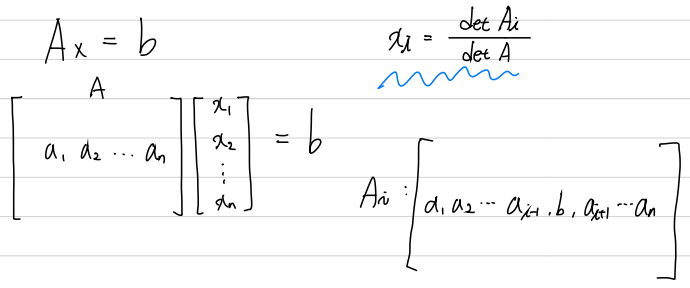 Ax = b
xᵢ = det Aᵢ / det A
A
[a₁ a₂ ⋯ aₙ] [x₁ x₂ ⋮ xₙ] = b
Aᵢ : [a₁ a₂ ⋯ aᵢ₋₁, b, aᵢ₊₁ ⋯ aₙ]